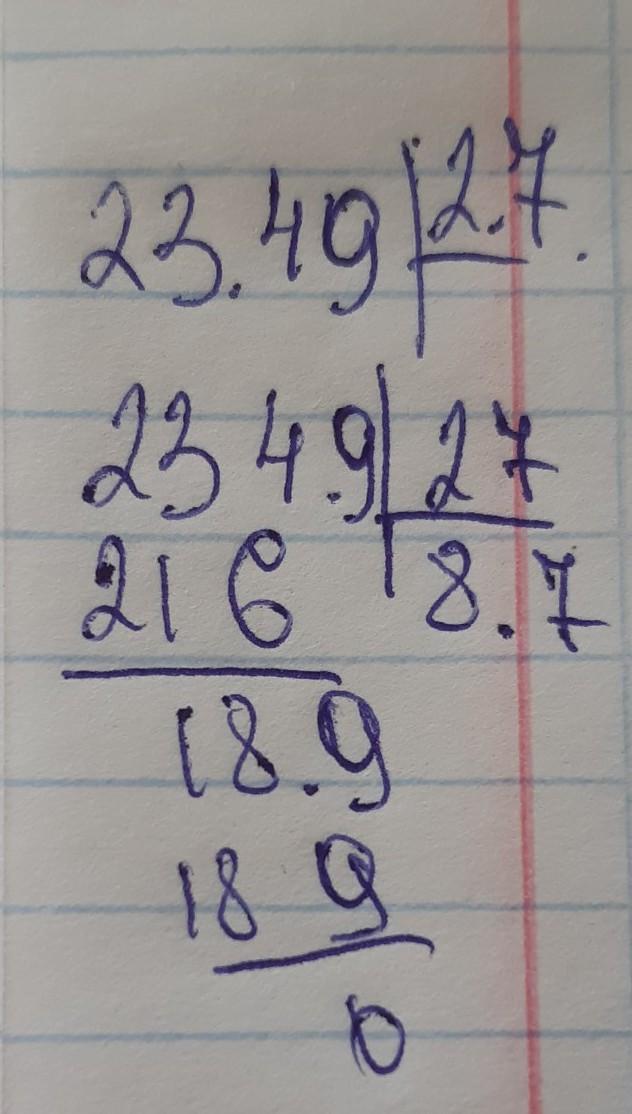 23.49 2.7.
234.9 27
216 8.7
18.9
18 9
0